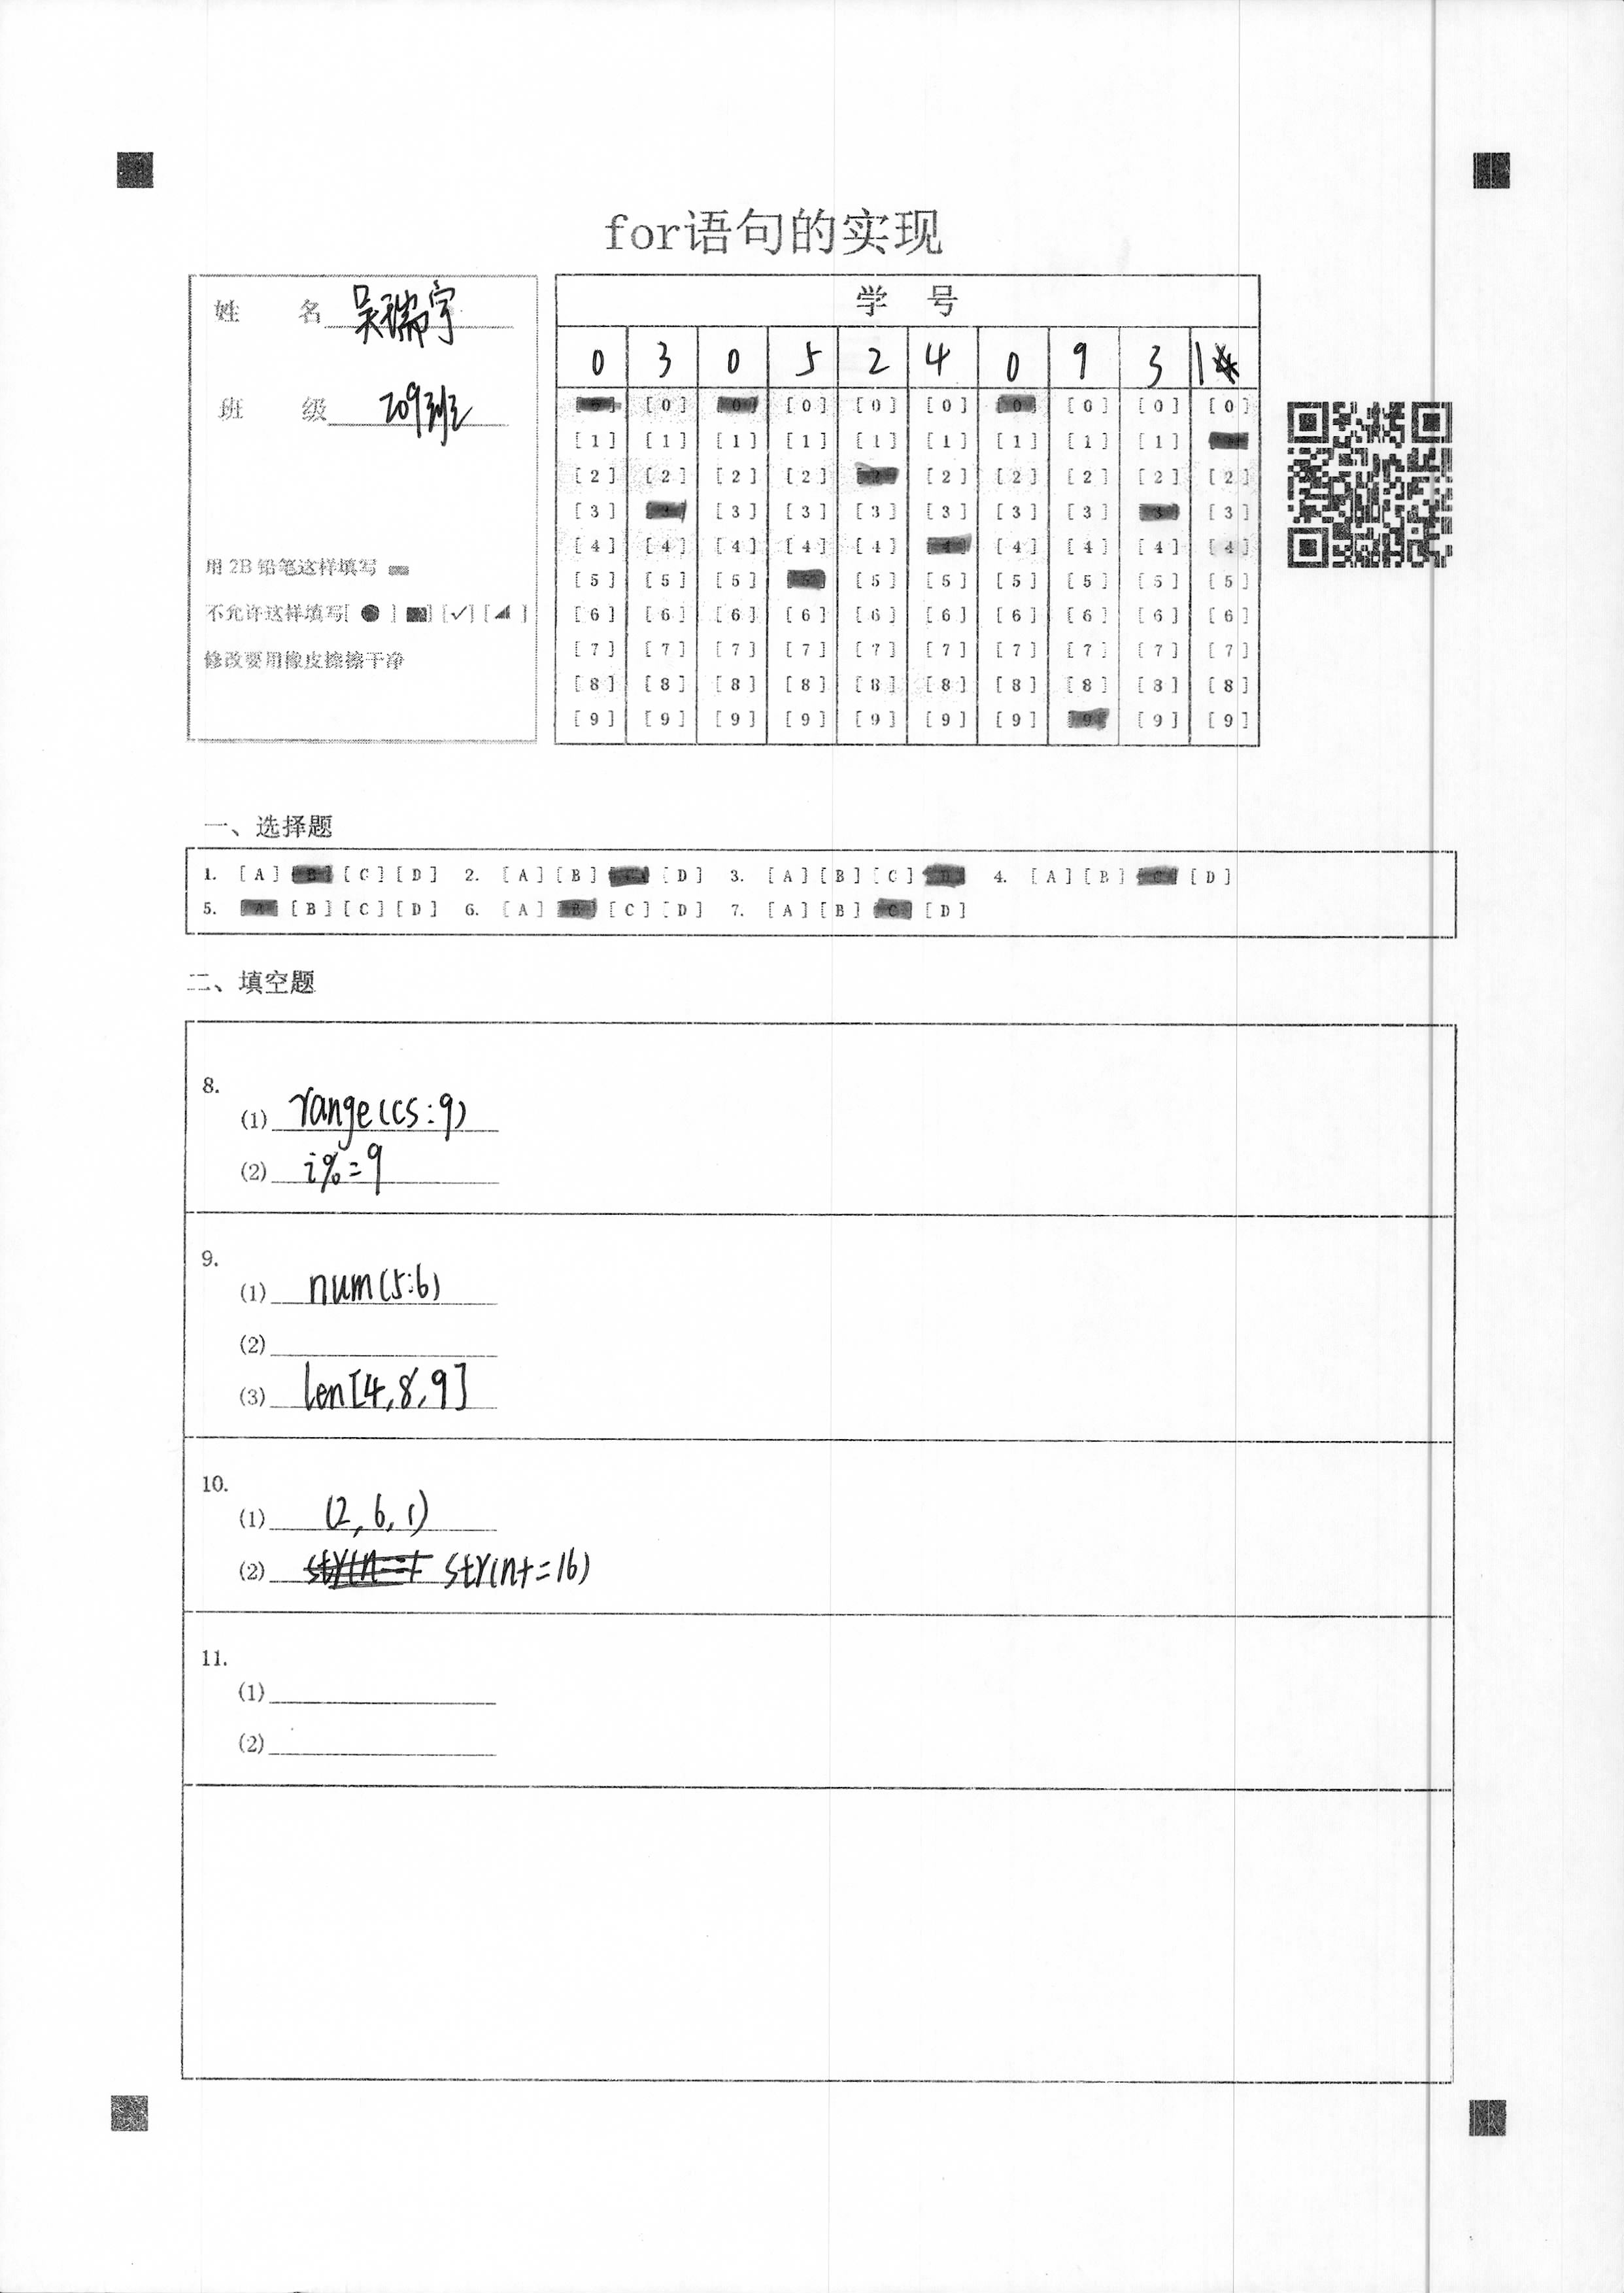 for语句的实现
姓 名 吴瑞宇
班 级 209班
用 2B 铅笔这样填写
不允许这样填写[ ● ] [■] [✓] [◢ ]
修改要用橡皮擦擦干净
学 号
0 3 0 5 2 4 0 9 3 1
[0] [0] [0] [0] [0] [0] [0] [0] [0] [0]
[1] [1] [1] [1] [1] [1] [1] [1] [1] [1]
[2] [2] [2] [2] [2] [2] [2] [2] [2] [2]
[3] [3] [3] [3] [3] [3] [3] [3] [3] [3]
[4] [4] [4] [4] [4] [4] [4] [4] [4] [4]
[5] [5] [5] [5] [5] [5] [5] [5] [5] [5]
[6] [6] [6] [6] [6] [6] [6] [6] [6] [6]
[7] [7] [7] [7] [7] [7] [7] [7] [7] [7]
[8] [8] [8] [8] [8] [8] [8] [8] [8] [8]
[9] [9] [9] [9] [9] [9] [9] [9] [9] [9]
一、选择题
1. [A] [B] [C] [D] 2. [A] [B] [C] [D] 3. [A] [B] [C] [D] 4. [A] [B] [C] [D]
5. [A] [B] [C] [D] 6. [A] [B] [C] [D] 7. [A] [B] [C] [D]
二、填空题
8.
(1) range(cs:9)
(2) i%=9
9.
(1) num(5:6)
(2)
(3) len[4,8,9]
10.
(1) (2,6,1)
(2) str(n+=16)
11.
(1)
(2)